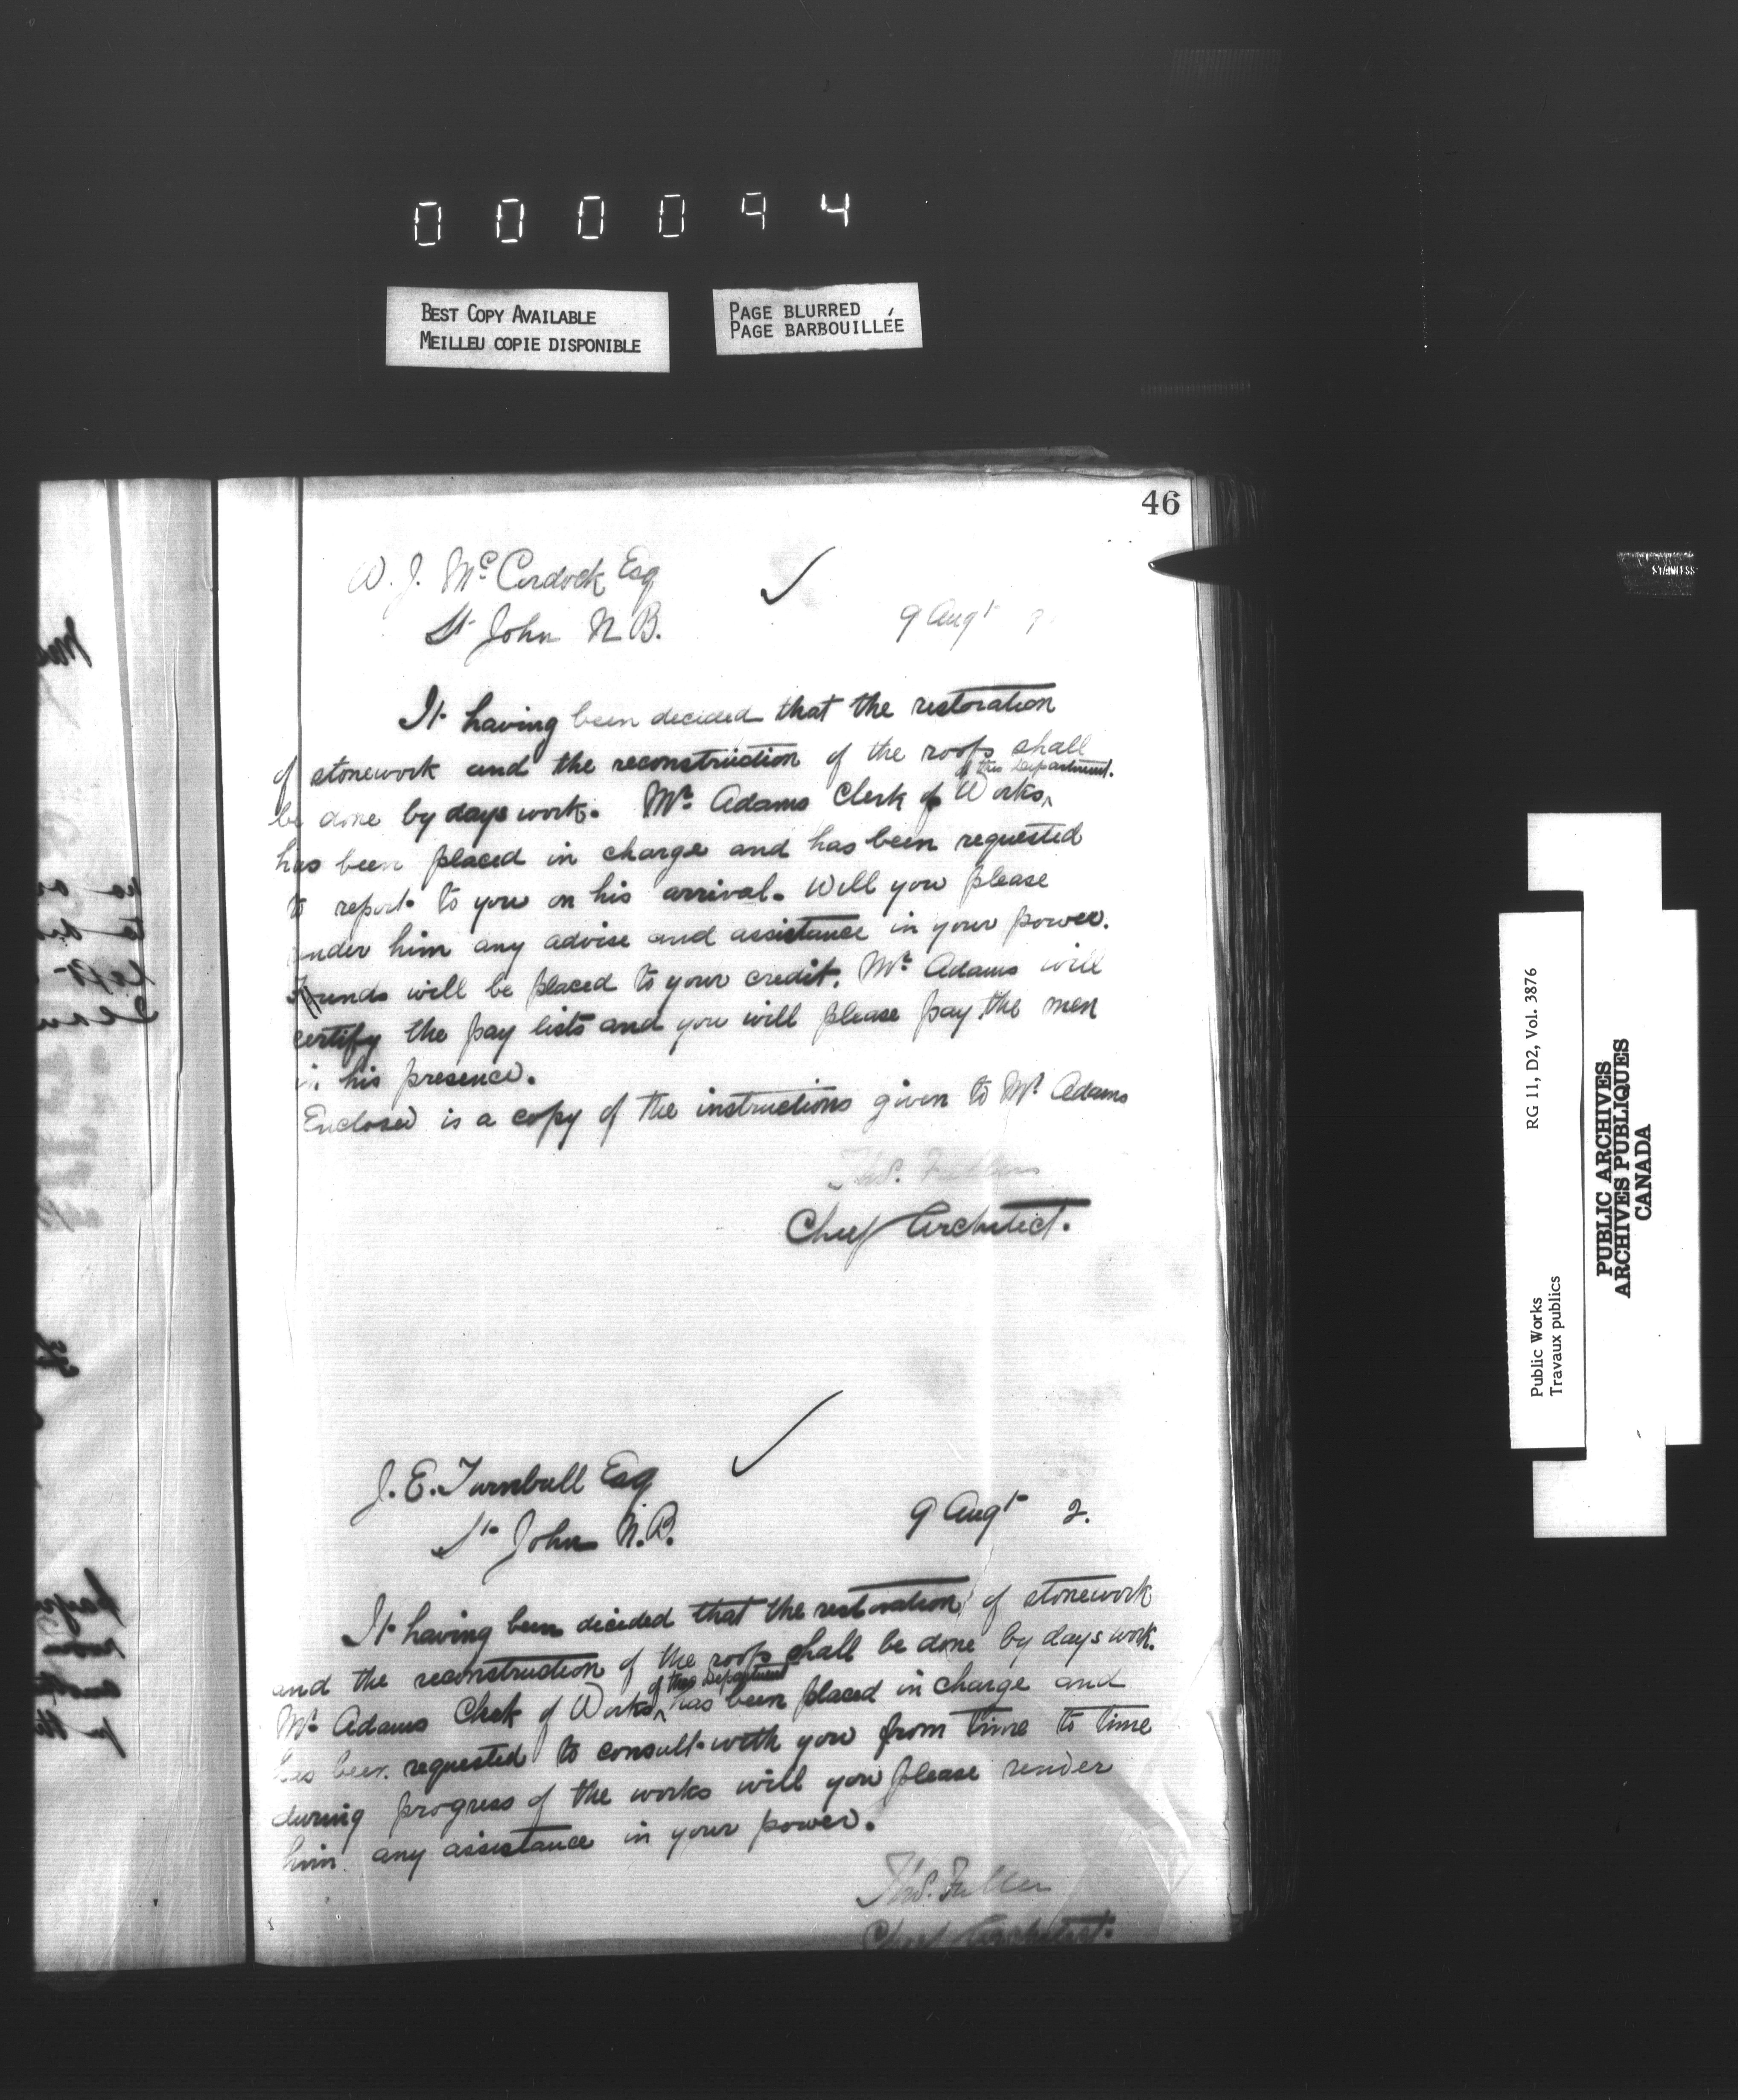 000094
BEST COPY AVAILABLE
MEILLEU COPIE DISPONIBLE
PAGE BLURRED
PAGE BARBOUILLÉE
46
W. J. McCordock Esq
St John N B.
9 Augt
It having been decided that the restoration
of stonework and the reconstruction of the roofs shall
of this Department.
be done by days work. Mr Adams Clerk of Works ^
has been placed in charge and has been requested
to report to you on his arrival. Will you please
render him any advise and assistance in your power.
Funds will be placed to your credit. Mr Adams will
certify the pay lists and you will please pay the men
in his presence.
Enclosed is a copy of the instructions given to Mr Adams
Thos. Fuller
Chief Architect.
J. E. Turnbull Esq
St John N.B.
9 Augt 2.
It having been decided that the restoration of stonework
and the reconstruction of the roofs shall be done by days work.
of this Department
Mr Adams Clerk of Works ^ has been placed in charge and
has been requested to consult with you from time to time
during progress of the works will you please render
him any assistance in your power.
Thos. Fuller
Chief Architect.
STAINLESS
Public Works
Travaux publics
RG 11, D2, Vol. 3876
PUBLIC ARCHIVES
ARCHIVES PUBLIQUES
CANADA